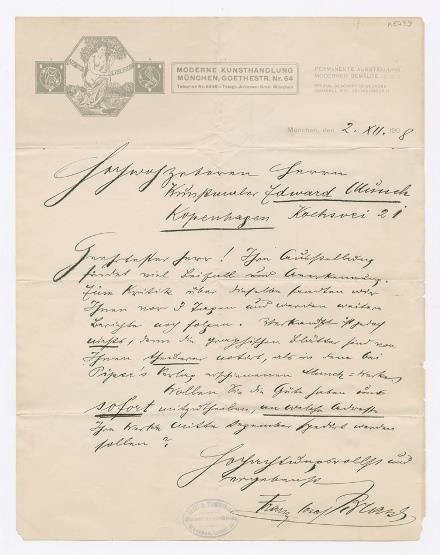 MODERNE KUNSTHANDLUNG
MÜNCHEN, GOETHESTR. Nr. 64
PERMANENTE AUSSTELLUNG
MODERNER GEMÄLDE
München, den 2. XII. 1908
Hochwohlgeboren Herrn
Kunstmaler Edward Munch
Kopenhagen
Geehrtester Herr! Ihre Ausstellung
findet viel Beifall und Anerkennung.
Eine Kritik über dieselbe sandten wir
Ihnen vor 3 Tagen und werden weitere
Berichte noch folgen. Verkauft ist jedoch
nichts, denn die graphischen Blätter sind von
Ihnen theurer notirt, als in dem bei
Piper's Verlag erschienenen Munch-Werke.
Wollen Sie die Güte haben uns
sofort mitzutheilen, an welche Adresse
Ihre Werke Mitte Dezember spedirt werden
sollen?
Hochachtungsvollst und
ergebenst
Franz Josef Brakl